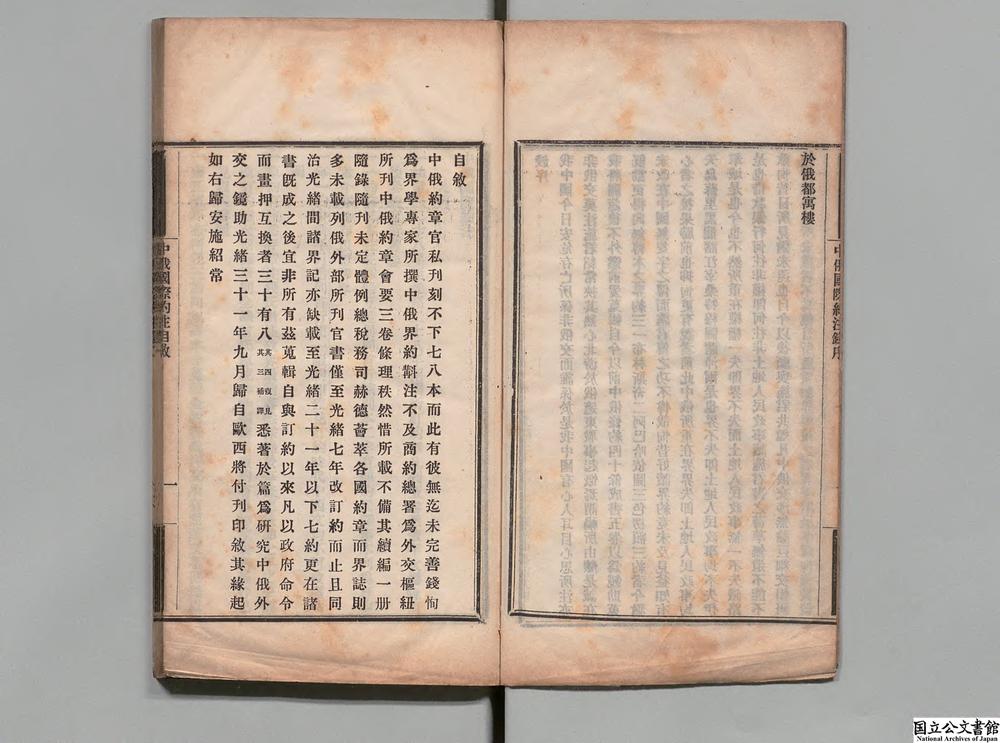 於俄都寓樓
中俄國際約注錄序
自敘
中俄約章官私刊刻不下七八本而此有彼無迄未完善錢恂
爲界學專家所撰中俄界約斠注不及商約總署爲外交樞紐
所刊中俄約章會要三卷條理秩然惜所載不備其續編一册
隨錄隨刊未定體例總稅務司赫德薈萃各國約章而界誌則
多未載列俄外部所刊官書僅至光緒七年改訂約而止且同
治光緒間諸界記亦缺載至光緒二十一年以下七約更在諸
書旣成之後宜非所有茲蒐輯自與訂約以來凡以政府命令
而畫押互換者三十有八其四復見其三補譯悉著於篇爲研究中俄外
交之鏡助光緒三十一年九月歸自歐西將付刊印敘其緣起
如右歸安施紹常
中俄國際約注自敘
一
国立公文書館
National Archives of Japan